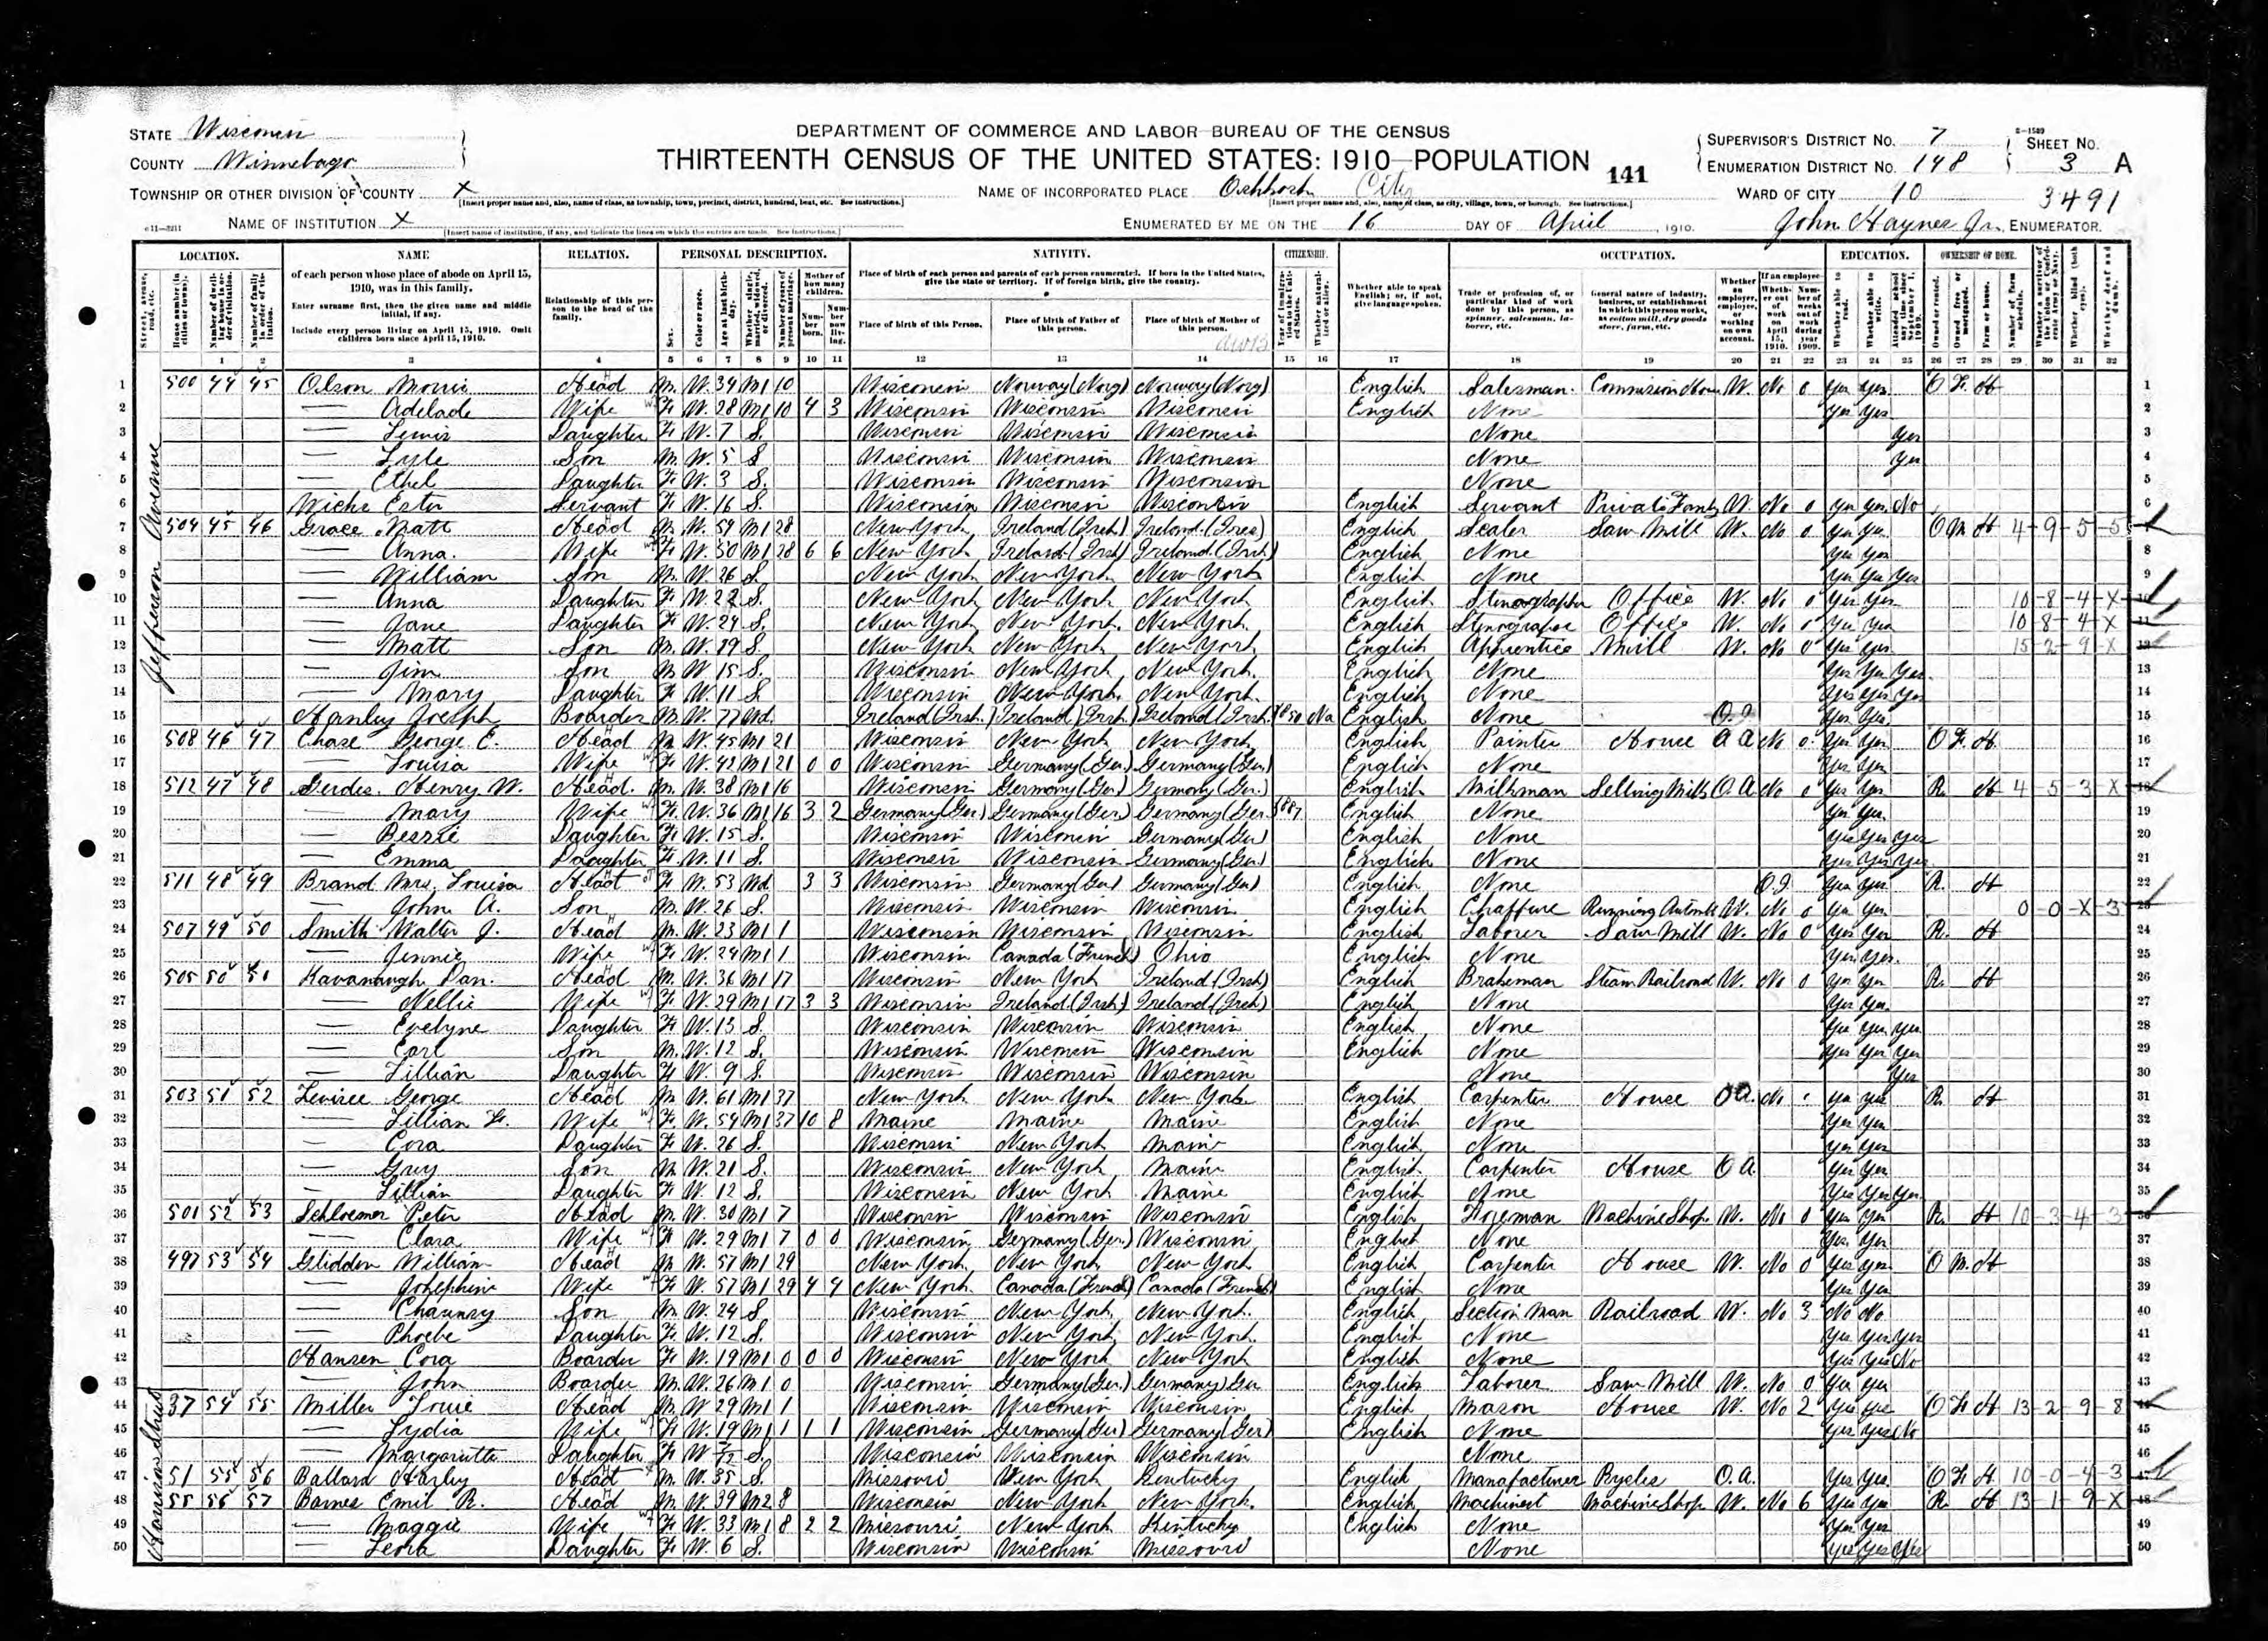 STATE Wisconsin
COUNTY Winnebago
TOWNSHIP OR OTHER DIVISION OF COUNTY X
NAME OF INSTITUTION X
DEPARTMENT OF COMMERCE AND LABOR—BUREAU OF THE CENSUS
THIRTEENTH CENSUS OF THE UNITED STATES: 1910—POPULATION
141
NAME OF INCORPORATED PLACE Oshkosh City
ENUMERATED BY ME ON THE 16 DAY OF April, 1910.
SUPERVISOR'S DISTRICT No. 7
ENUMERATION DISTRICT No. 148
SHEET No. 3 A
WARD OF CITY 10
3491
John Haynes Jr., ENUMERATOR.
LOCATION. NAME RELATION. PERSONAL DESCRIPTION. NATIVITY. CITIZENSHIP. OCCUPATION. EDUCATION. OWNERSHIP OF HOME.
of each person whose place of abode on April 15, 1910, was in this family.
Enter surname first, then the given name and middle initial, if any.
Include every person living on April 15, 1910. Omit children born since April 15, 1910.
Relationship of this person to the head of the family.
Place of birth of each person and parents of each person enumerated. If born in the United States, give the state or territory. If of foreign birth, give the country.
Place of birth of this Person. Place of birth of Father of this person. Place of birth of Mother of this person.
Whether able to speak English; or, if not, give language spoken.
Jefferson Avenue
1 500 44 45 Olson Morris Head M W 34 M1 10 Wisconsin Norway (Norg) Norway (Norg) English Salesman Commission House W No 0 Yes Yes O F H
2 — Adelade Wife F W 28 M1 10 4 3 Wisconsin Wisconsin Wisconsin English None Yes Yes
3 — Daughter F W 7 S Wisconsin Wisconsin Wisconsin None Yes
4 — Lyle Son M W 5 S Wisconsin Wisconsin Wisconsin None Yes
5 — Ethel Daughter F W 3 S Wisconsin Wisconsin Wisconsin None
6 Ester Servant F W 16 S Wisconsin Wisconsin Wisconsin English Servant Private Family W No 0 Yes Yes No
7 504 45 46 Grace Matt Head M W 59 M1 28 New York Ireland (Irsh) Ireland English Saw Mill W No 0 Yes Yes O M H 4-9-5-5
8 — Anna Wife F W 50 M1 28 6 6 New York Ireland (Irsh) Ireland (Irsh) English None Yes Yes
9 — William Son M W 26 S New York New York New York English None Yes Yes Yes
10 — Anna Daughter F W 22 S New York New York New York English Stenographer Office W No 0 Yes Yes 10-8-4-X
11 — Jane Daughter F W 24 S New York New York New York English Stenographer Office W No 0 Yes Yes 10 8-4 X
12 — Matt Son M W 19 S New York New York New York English Apprentice Mill W No 0 Yes Yes 15-2-9-X
13 — Jim Son M W 15 S Wisconsin New York New York English None Yes Yes Yes
14 — Mary Daughter F W 11 S Wisconsin New York New York English None Yes Yes Yes
15 Hanley Joseph Boarder M W 77 Wd Ireland (Irsh) Ireland (Irsh) Ireland (Irsh) 1850 Na English None O.I. Yes Yes
16 508 46 47 Chase George E. Head M W 45 M1 21 Wisconsin New York New York English Painter House O A No 0 Yes Yes O F H
17 — Louisa Wife F W 42 M1 21 0 0 Wisconsin Germany (Ger) Germany (Ger) English None Yes Yes
18 512 47 48 Gerdes Henry W. Head M W 38 M1 16 Wisconsin Germany (Ger) Germany (Ger) English Milkman Selling Milk O A No 0 Yes Yes R H 4-5-3-X
19 — Mary Wife F W 36 M1 16 3 2 Germany (Ger) Germany (Ger) Germany (Ger) 1887 English None Yes Yes
20 — Bessie Daughter F W 15 S Wisconsin Wisconsin Germany (Ger) English None Yes Yes Yes
21 — Emma Daughter F W 11 S Wisconsin Wisconsin Germany (Ger) English None Yes Yes Yes
22 511 48 49 Brand Mrs. Louisa Head F W 53 Wd 3 3 Wisconsin Germany (Ger) Germany (Ger) English None O.I. Yes Yes R H
23 — John A. Son M W 26 S Wisconsin Wisconsin Wisconsin English Chaffure Running W No 0 Yes Yes 0-0-X-3
24 507 49 50 Smith Walter J. Head M W 23 M1 1 Wisconsin Wisconsin Wisconsin English Laborer Saw Mill W No 0 Yes Yes R H
25 — Jennie Wife F W 24 M1 1 Wisconsin Canada (French) Ohio English None Yes Yes
26 505 50 51 Kavanaugh Dan. Head M W 36 M1 17 Wisconsin New York Ireland (Irsh) English Brakeman Steam Railroad W No 0 Yes Yes R H
27 — Nellie Wife F W 29 M1 17 3 3 Wisconsin Ireland (Irsh) Ireland (Irsh) English None Yes Yes
28 — Evelyne Daughter F W 13 S Wisconsin Wisconsin Wisconsin English None Yes Yes Yes
29 — Earl Son M W 12 S Wisconsin Wisconsin Wisconsin English None Yes Yes Yes
30 — Lillian Daughter F W 9 S Wisconsin Wisconsin Wisconsin None Yes
31 503 51 52 George Head M W 61 M1 37 New York New York New York English Carpenter House O A No Yes Yes R H
32 — Lillian F. Wife F W 54 M1 37 10 8 Maine Maine Maine English None Yes Yes
33 — Cora Daughter F W 26 S Wisconsin New York Maine English None Yes Yes
34 — Guy Son M W 21 S Wisconsin New York Maine English Carpenter House O A Yes Yes
35 — Lillian Daughter F W 12 S Wisconsin New York Maine English None Yes Yes Yes
36 501 52 53 Schloemer Peter Head M W 30 M1 7 Wisconsin Wisconsin Wisconsin English Foreman Machine Shop W No 0 Yes Yes R H 10-3-4-3
37 — Clara Wife F W 29 M1 7 0 0 Wisconsin Germany (Ger) Wisconsin English None Yes Yes
38 497 53 54 Glidden William Head M W 57 M1 29 New York New York New York English Carpenter House W No 0 Yes Yes O M H
39 — Josephine Wife F W 57 M1 29 4 4 New York Canada (French) Canada (French) English None Yes Yes
40 — Chauncy Son M W 24 S Wisconsin New York New York English Section Man Railroad W No 3 No No
41 — Phoebe Daughter F W 12 S Wisconsin New York New York English None Yes Yes Yes
42 Hansen Cora Boarder F W 19 M1 0 0 0 Wisconsin New York New York English None Yes Yes No
43 — John Boarder M W 26 M1 0 Wisconsin Germany (Ger) Germany (Ger English Laborer Saw Mill W No 0 Yes Yes
Harrison Street
44 37 54 55 Miller Louie Head M W 29 M1 1 Wisconsin Wisconsin Wisconsin English Mason House W No 2 Yes Yes O F H 13-2-9-8
45 — Lydia Wife F W 19 M1 1 1 1 Wisconsin Germany (Ger) Germany (Ger) English None Yes Yes No
46 — Margaretta Daughter F W S Wisconsin Wisconsin Wisconsin None
47 51 55 56 Ballard Harley Head M W 35 S Missouri New York Kentucky English Manufacturer O.A. Yes Yes O F H 10-0-4-3
48 55 56 57 Barnes Emil R. Head M W 39 M2 8 Wisconsin New York New York English Machinest Machine Shop W No 6 Yes Yes R H 13-1-9-X
49 — Maggie Wife F W 33 M1 8 2 2 Missouri New York Kentucky English None Yes Yes
50 — Leora Daughter F W 6 S Wisconsin Wisconsin Missouri None Yes Yes Yes